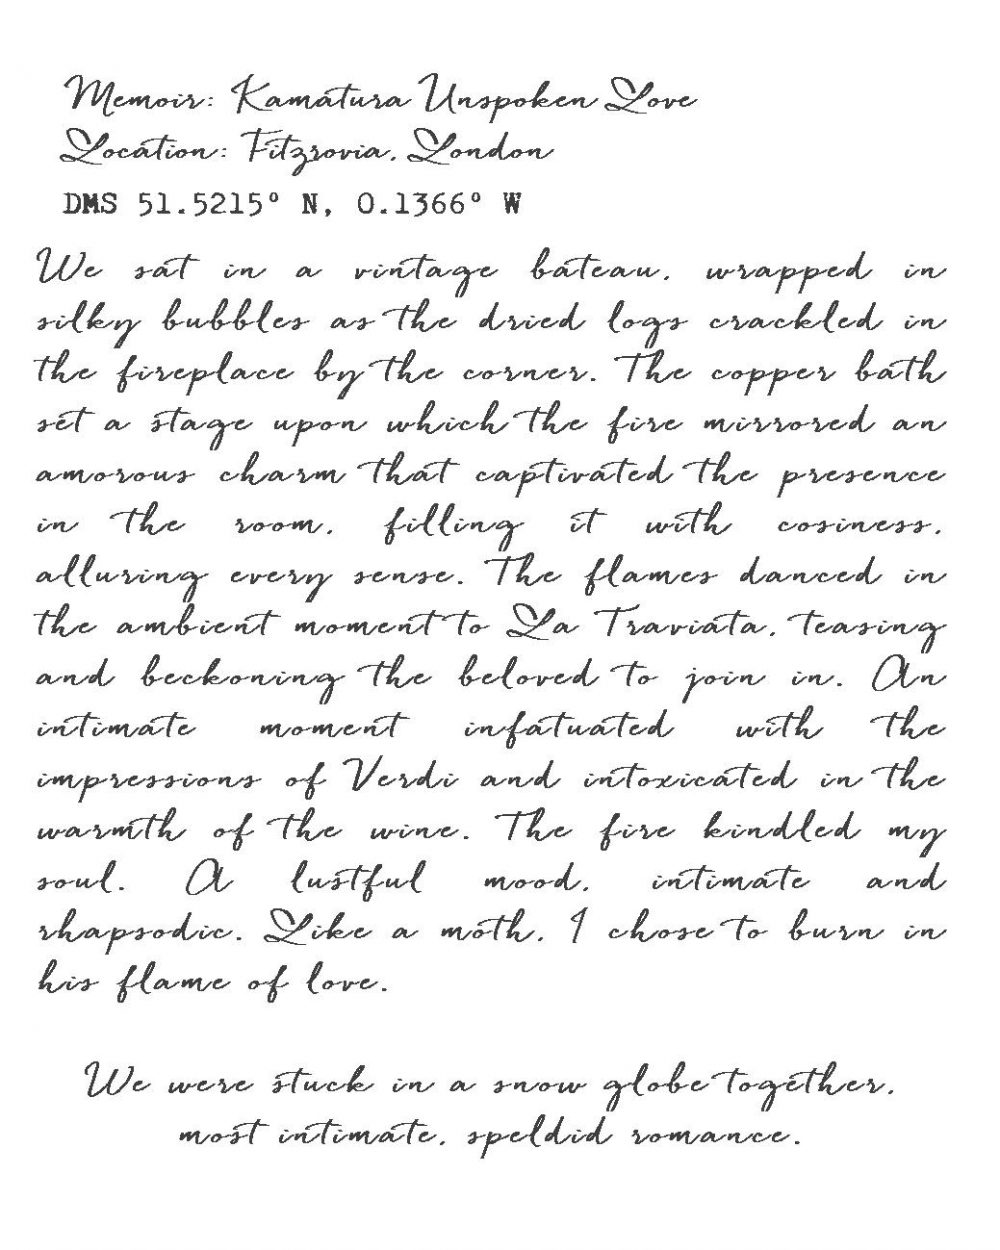 Memoir: Kamatura Unspoken Love
Location: Fitzrovia, London
DMS 51.5215° N, 0.1366° W
We sat in a vintage bateau, wrapped in
silky bubbles as the dried logs crackled in
the fireplace by the corner. The copper bath
set a stage upon which the fire mirrored an
amorous charm that captivated the presence
in the room, filling it with cosiness,
alluring every sense. The flames danced in
the ambient moment to La Traviata, teasing
and beckoning the beloved to join in. An
intimate moment infatuated with the
impressions of Verdi and intoxicated in the
warmth of the wine. The fire kindled my
soul. A lustful mood, intimate and
rhapsodic. Like a moth, I chose to burn in
his flame of love.
We were stuck in a snow globe together,
most intimate, speldid romance.